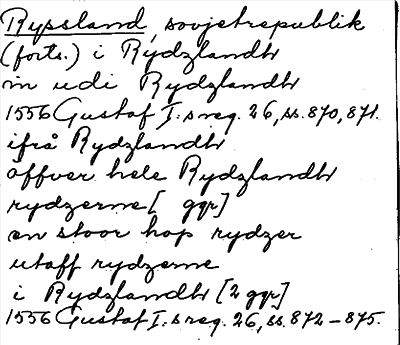 Ryssland, sovjetrepublik
(forts.) i Rydzlandh
in udi Rydzlandh
1556 Gustaf I:s reg. 26, ss. 870, 871.
ifrå Rydzlandh
åffver hele Rydzlandh
rydzerne [ ggr]
en stoor hop rydzer
utaff rydzerne
i Rydzlandh [2 ggr]
1556 Gustaf I:s reg. 26, ss. 872-875.